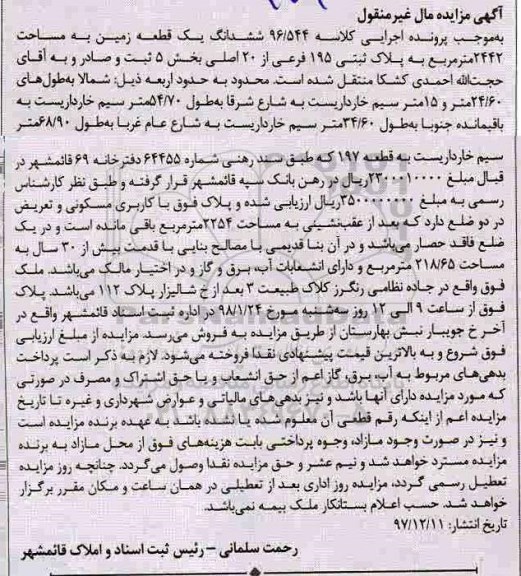 آگهی مزایده مال غیرمنقول
به‌موجب پرونده اجرایی کلاسه ۹۶/۵۴۴ ششدانگ یک قطعه زمین به مساحت
۲۴۴۲مترمربع به پلاک ثبتی ۱۹۵ فرعی از ۲۰ اصلی بخش ۵ ثبت و صادر و به آقای
حجت‌الله احمدی کشکا منتقل شده است. محدود به حدود اربعه ذیل: شمالا به‌طول‌های
۲۴/۶۰متر و ۱۵متر سیم خارداریست به شارع شرقا به‌طول ۵۴/۷۰متر سیم خارداریست به
باقیمانده جنوبا به‌طول ۳۴/۶۰متر سیم خارداریست به شارع عام غربا به‌طول ۶۸/۹۰متر
سیم خارداریست به قطعه ۱۹۷ که طبق سند رهنی شماره ۶۴۴۵۵ دفترخانه ۶۹ قائمشهر در
قبال مبلغ ۲۳۰۰۰۱۰۰۰۰ریال در رهن بانک سپه قائمشهر قرار گرفته و طبق نظر کارشناس
رسمی به مبلغ ریال ارزیابی شده و پلاک فوق با کاربری مسکونی و تعریض
در دو ضلع دارد که بعد از عقب‌نشینی به مساحت ۲۲۵۴مترمربع باقی مانده است و در یک
ضلع فاقد حصار می‌باشد و در آن بنا قدیمی با مصالح بنایی با قدمت بیش از ۳۰ سال به
مساحت ۲۱۸/۶۵ مترمربع و دارای انشعابات آب، برق و گاز و در اختیار مالک می‌باشد. ملک
فوق واقع در جاده نظامی رنگرز کلاک طبیعت ۳ بعد از خ شالیزار پلاک ۱۱۲ می‌باشد. پلاک
فوق از ساعت ۹ الی ۱۲ روز سه‌شنبه مورخ ۹۸/۱/۲۴ در اداره ثبت اسناد قائمشهر واقع در
آخر خ جویبار نبش بهارستان از طریق مزایده به فروش می‌رسد. مزایده از مبلغ ارزیابی
فوق شروع و به بالاترین قیمت پیشنهادی نقدا فروخته می‌شود. لازم به ذکر است پرداخت
بدهی‌های مربوط به آب، برق، گاز اعم از حق انشعاب و یا حق اشتراک و مصرف در صورتی
که مورد مزایده دارای آنها باشد و نیز بدهی‌های مالیاتی و عوارض شهرداری و غیره تا تاریخ
مزایده اعم از اینکه رقم قطعی آن معلوم شده یا نشده باشد به عهده برنده مزایده است
و نیز در صورت وجود مازاد، وجوه پرداختی بابت هزینه‌های فوق از محل مازاد به برنده
مزایده مسترد خواهد شد و نیم عشر و حق مزایده نقدا وصول می‌گردد. چنانچه روز مزایده
تعطیل رسمی گردد، مزایده روز اداری بعد از تعطیلی در همان ساعت و مکان مقرر برگزار
خواهد شد. حسب اعلام بستانکار ملک بیمه نمی‌باشد.
تاریخ انتشار: ۹۷/۱۲/۱۱
رحمت سلمانی – رئیس ثبت اسناد و املاک قائمشهر